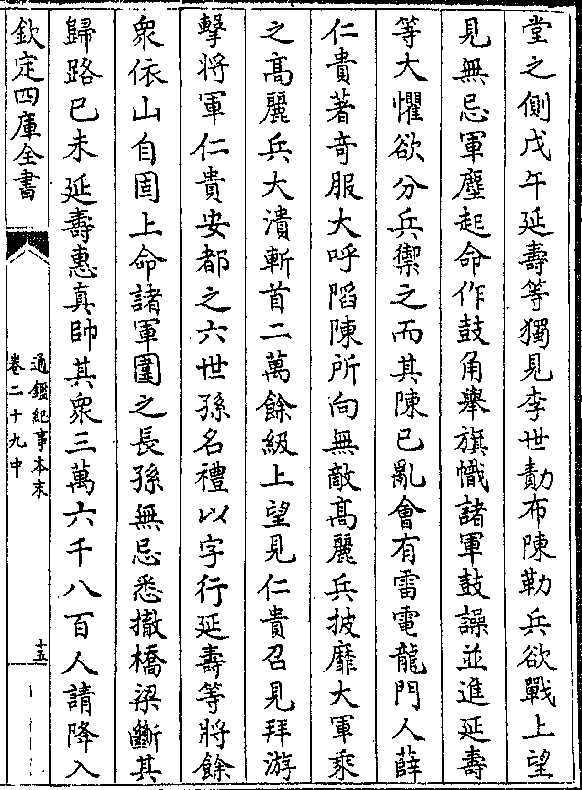 堂之側戊午延壽等獨見李世勣布陳勒兵欲戰上望
見無忌軍塵起命作鼓角舉旗幟諸軍鼓譟並進延壽
等大懼欲分兵禦之而其陳已亂會有雷電龍門人薛
仁貴著竒服大呼陷陳所向無敵髙麗兵披靡大軍乘
之髙麗兵大潰斬首二萬餘級上望見仁貴召見拜游
擊將軍仁貴安都之六世孫名禮以字行延壽等將餘
衆依山自固上命諸軍圍之長孫無忌悉撤橋梁斷其
歸路已未延壽惠真帥其衆三萬六千八百人請降入
欽定四庫全書
通鑑紀事本末
卷二十九中
十五